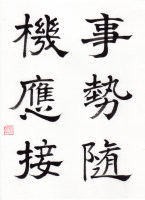 事勢随
機應接